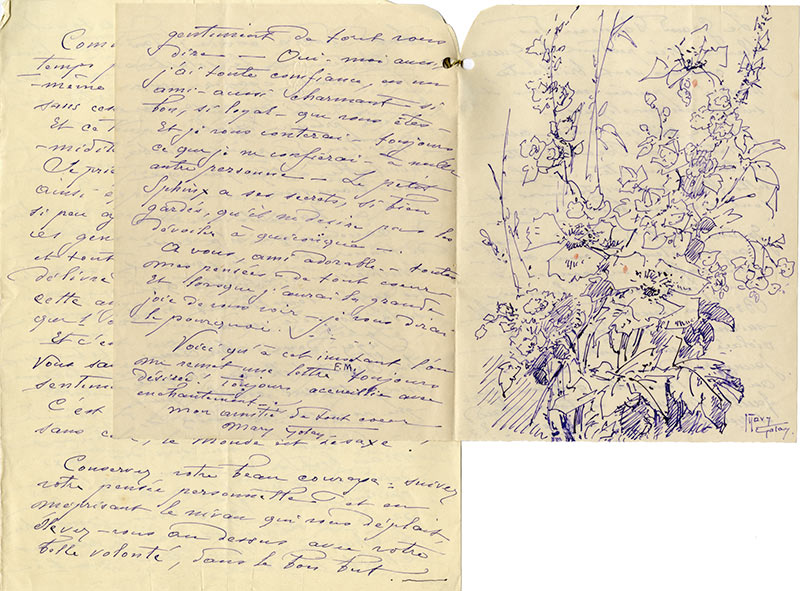 gentiment de tout vous
dire — Oui - moi aussi
j'ai toute confiance, en un
ami - aussi charmant si
bon, si loyal - que vous êtes -
Et je vous conterai - toujours
ce que je ne confierai - à nulle
autre personne - Le petit
Sphinx a ses secrets, si bien
gardés, qu'il ne désire pas les
dévoiler à quiconque -
A vous, ami adorable - toutes
mes pensées de tout cœur
Et lorsque j'aurai la grande
joie de vous voir - je vous dirai -
le pourquoi.
Voici qu'à cet instant, l'on
me remet une lettre F.M. toujours
désirée. Toujours accueillie avec
enchantement -
Mon amitié de tout cœur
Mary Golay
Mary
Golay.
temps
même
sans
Et ce
Je
ainsi
si peu
et tout
délivre
cette
que
Et c'e
Vous
C'est
sans le monde est désaxé !
Conservez votre beau courage - suivez
votre pensée personnelle et en
méprisant le niveau qui vous déplait
élevez-vous au dessus avec votre
belle volonté, dans le bon but. —